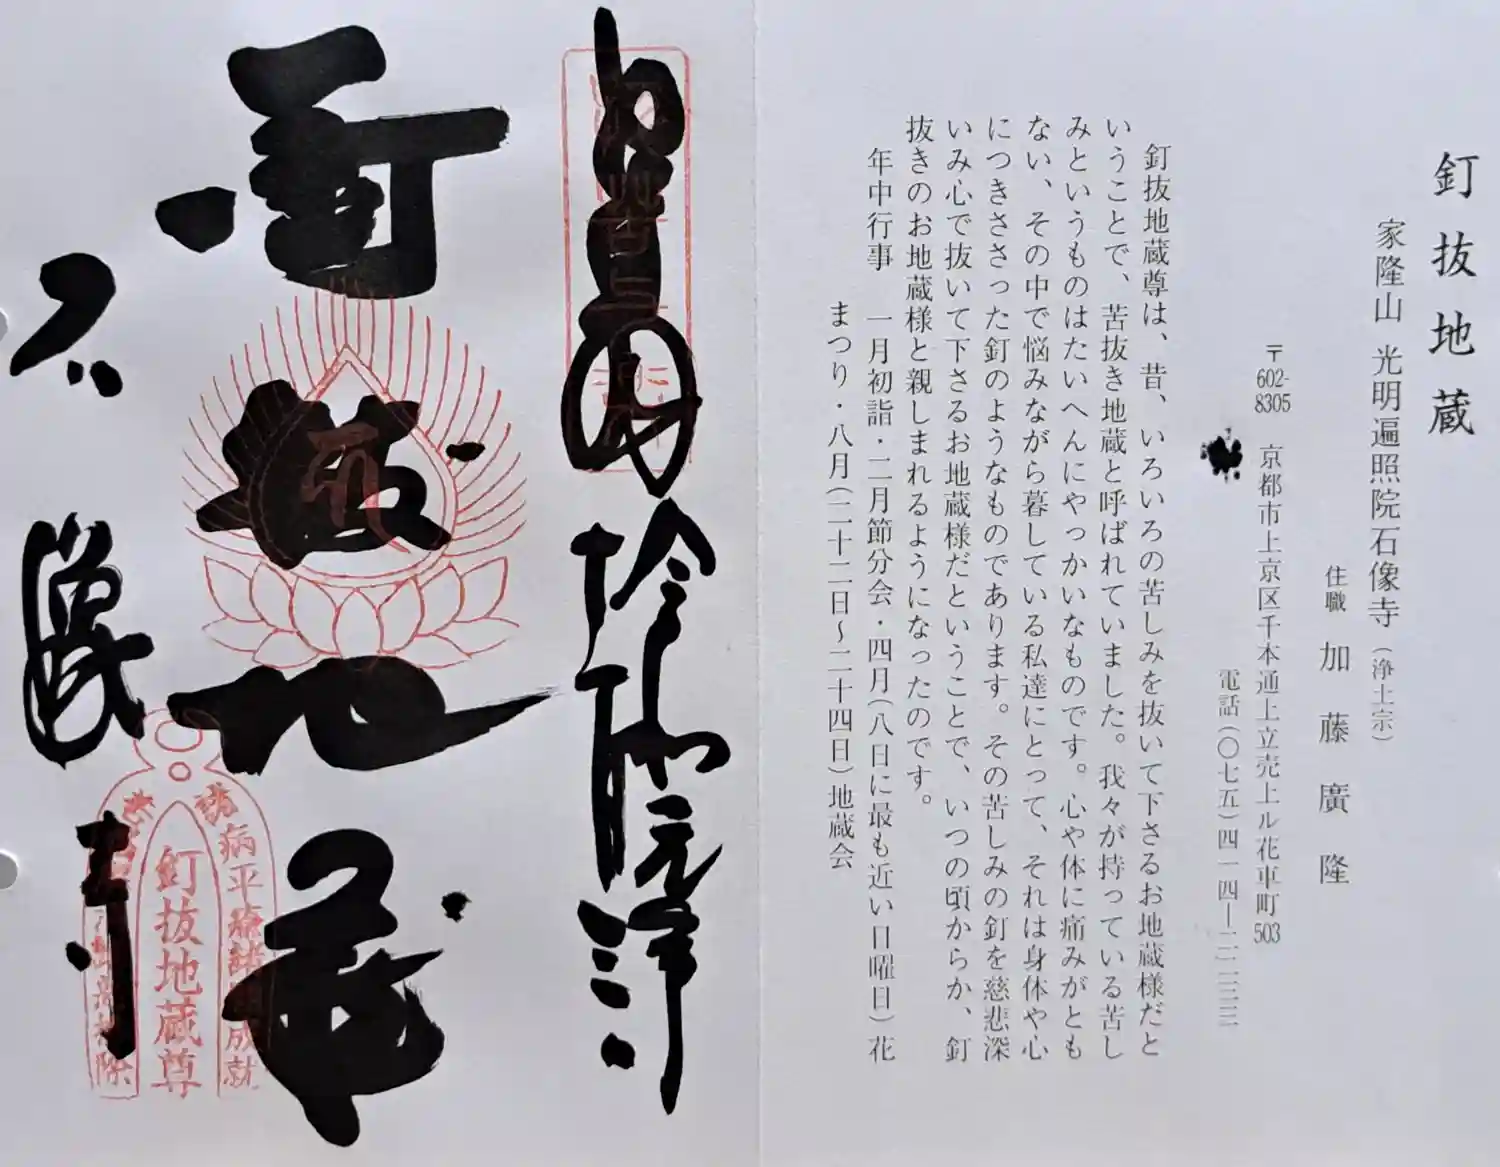 釘抜地蔵
家隆山 光明遍照院石像寺（浄土宗）
住職 加藤廣隆
〒602-8305 京都市上京区千本通上立売上ル花車町503
電話（〇七五）四一四―二二三三
釘抜地蔵尊は、昔、いろいろの苦しみを抜いて下さるお地蔵様だと
いうことで、苦抜き地蔵と呼ばれていました。我々が持っている苦し
みというものはたいへんにやっかいなものです。心や体に痛みがとも
ない、その中で悩みながら暮している私達にとって、それは身体や心
につきささった釘のようなものであります。その苦しみの釘を慈悲深
いみ心で抜いて下さるお地蔵様だということで、いつの頃からか、釘
抜きのお地蔵様と親しまれるようになったのです。
年中行事 一月初詣・二月節分会・四月（八日に最も近い日曜日）花
まつり・八月（二十二日～二十四日）地蔵会
釘抜地蔵
石像寺
諸病平癒諸願成就
釘抜地蔵尊